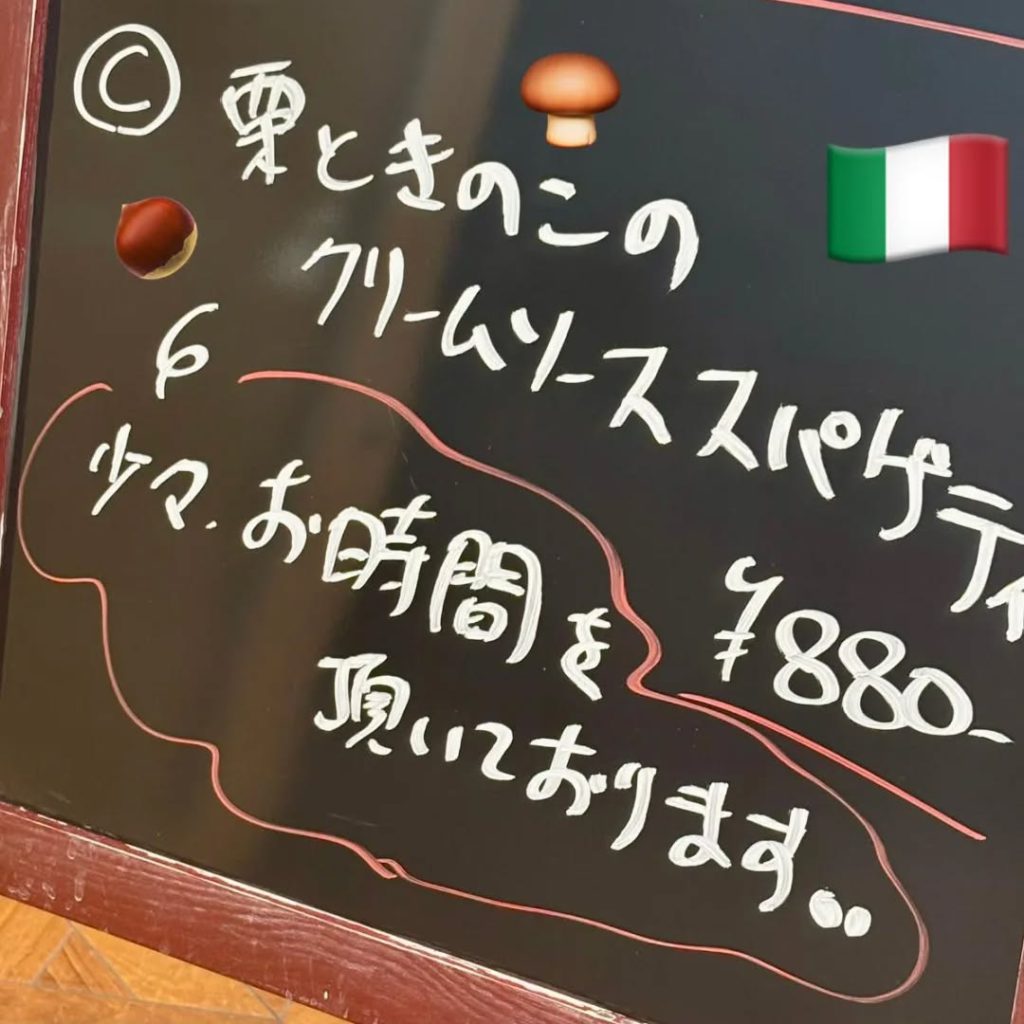 Ⓒ 栗ときのこの
クリームソーススパゲティ
¥880-
6
少々、お時間を
頂いております。。